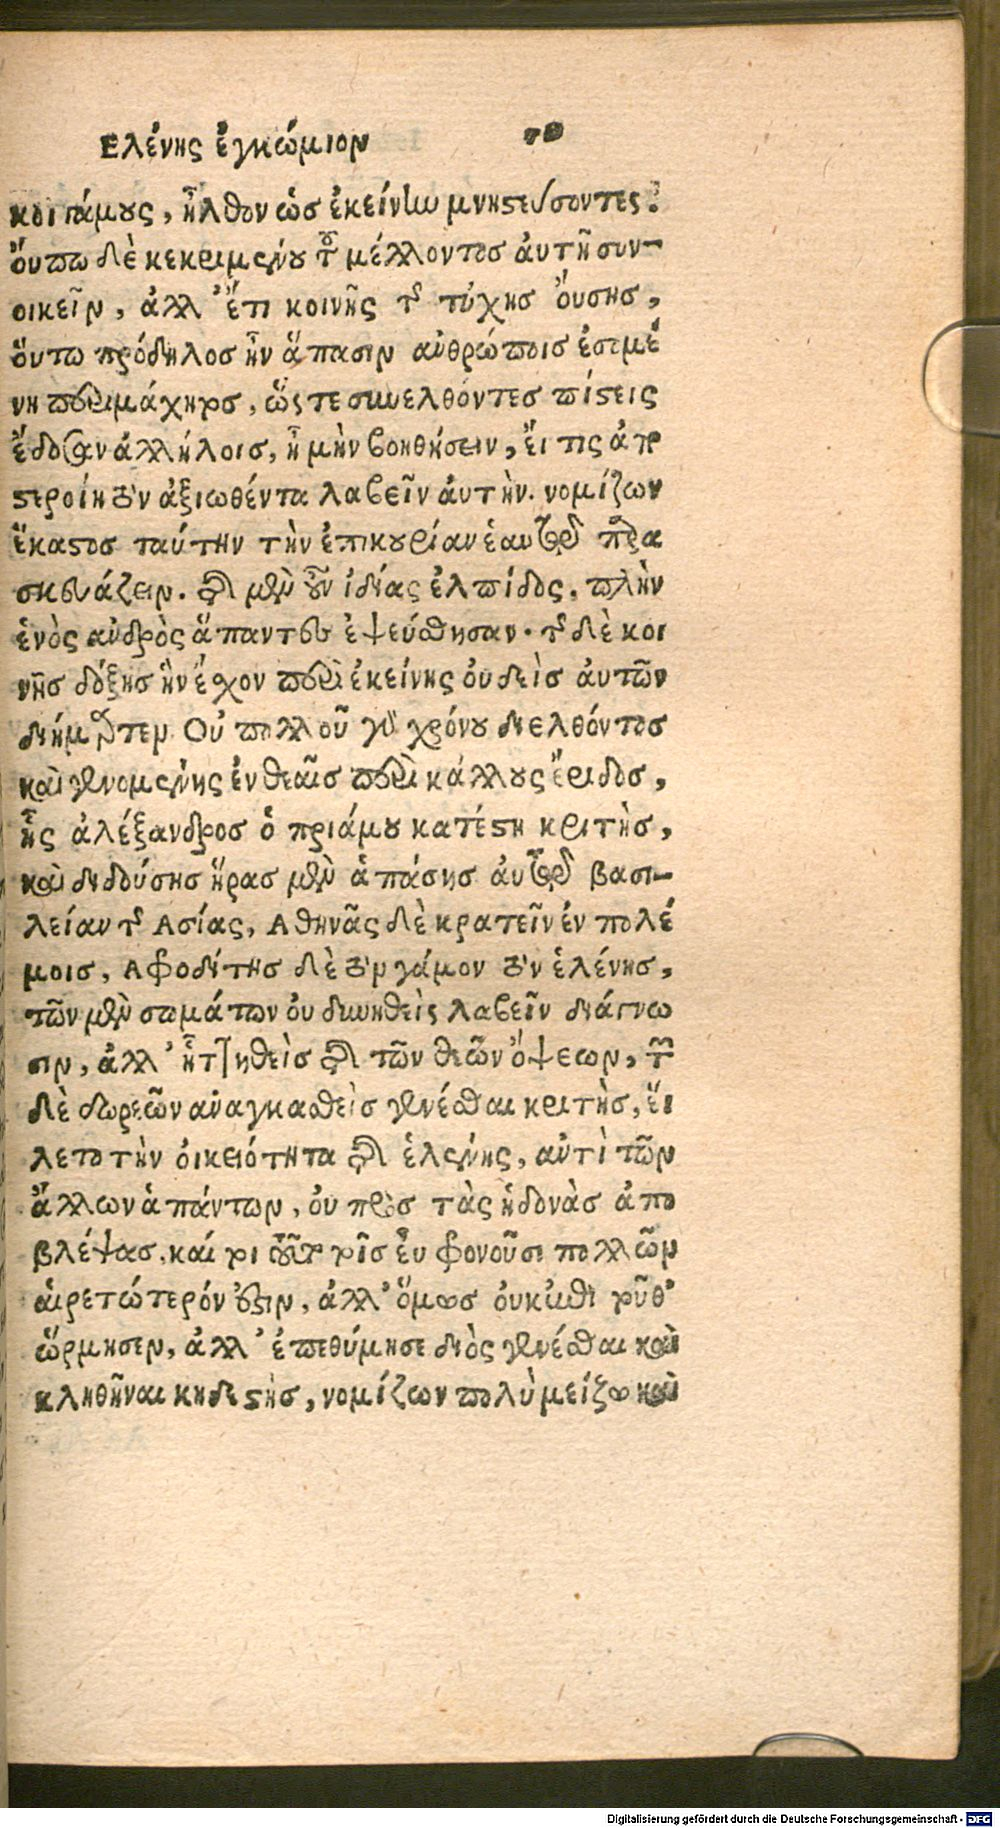 Ελένης ἐγκώμιον
κοι γάμους, ἦλθον ὡς ἐκείνην μνηστεύσοντες.
ὄυπω δὲ κεκριμένου τοῦ μέλλοντος ἀυτῇ συν-
οικεῖν, ἀλλ' ἔτι κοινῆς τῆς τύχης ὄυσης,
ὅυτω πρόδηλος ἦν ἅπασιν ἀνθρώποις ἐσομέ
νη περιμάχητος, ὥστε συνελθόντες πίστεις
ἔδοσαν ἀλλήλοις, ἦ μὴν βοηθήσειν, ἔι τις ἀπο
στεροίη τὸν ἀξιωθέντα λαβεῖν ἀυτὴν. νομίζων
ἕκαστος ταύτην τὴν ἐπικουρίαν ἑαυτῷ παρα
σκευάζειν. τῆς μὲν οὖν ἰδίας ἐλπίδος, πλὴν
ἑνὸς ἀνδρὸς ἅπαντες ἐψεύσθησαν. τῆς δὲ κοι
νῆς δόξης ἣν ἔσχον περὶ ἐκείνης ὀυδεὶς ἀυτῶν
διήμαρτεν. Οὐ πολλοῦ γὰρ χρόνου διελθόντος
καὶ γενομένης ἐν θεαῖς περὶ κάλλους ἔριδος,
ἧς ἀλέξανδρος ὁ πριάμου κατέστη κριτὴς,
καὶ διδούσης ἥρας μὲν ἁπάσης ἀυτῷ βασι-
λείαν τῆς Ασίας, Αθηνᾶς δὲ κρατεῖν ἐν πολέ
μοις, Αφροδίτης δὲ τὸν γάμον τὸν ἑλένης,
τῶν μὲν σωμάτων ὀυ δυνηθεὶς λαβεῖν διάγνω
σιν, ἀλλ' ἡττηθεὶς τῆς τῶν θεῶν ὄψεων, τῶν
δὲ δωρεῶν ἀναγκασθεὶς γενέσθαι κριτὴς, ἕι
λετο τὴν ὀικειότητα τῆς ἑλένης, ἀντὶ τῶν
ἄλλων ἁπάντων, ὀυ πρὸς τὰς ἡδονὰς ἀπο
βλέψας, καί τοι τοῦτο τοῖς εὖ φρονοῦσι πολλῶν
ἁιρετώτερόν ἐστιν, ἀλλ' ὅμως ὀυκ ἐπὶ τοῦθ'
ὥρμησεν, ἀλλ' ἐπεθύμησε διὸς γενέσθαι καὶ
κληθῆναι κηδεστὴς, νομίζων πολὺ μείζω καὶ
Digitalisierung gefördert durch die Deutsche Forschungsgemeinschaft - DFG